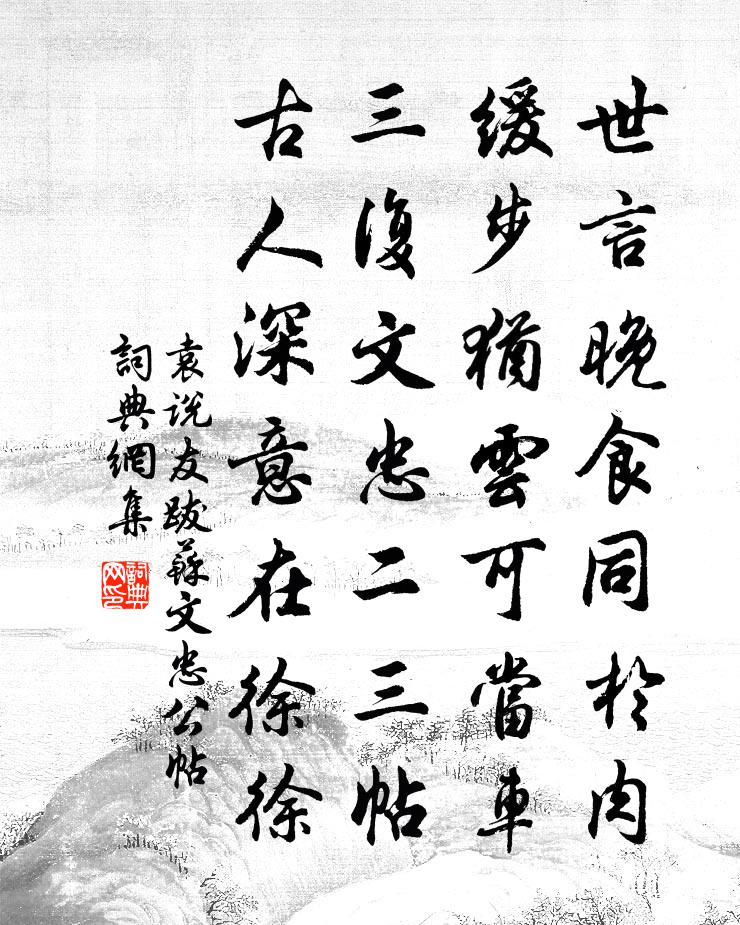 世言晚食同於肉
緩步猶雲可當車
三復文忠二三帖
古人深意在徐徐
袁說友跋蘇文忠公帖
詞典網集
詞典網印